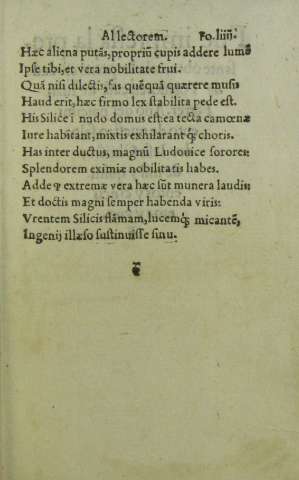 Ad lectorem. Fo. liiii.
Hæc aliena putãs, propriũ cupis addere lumẽ
Ipse tibi, et vera nobilitate frui.
Quã nisi dilectis, fas quẽquã quærere musis
Haud erit, hæc firmo lex stabilita pede est.
His Silice ĩ nudo domus est: ea tecta camœnæ
Iure habitant, mixtis exhilarantq́; choris.
Has inter ductus, magnũ Ludouice sorores:
Splendorem eximiæ nobilitatis habes.
Adde ꝙ extremæ vera hæc sũt munera laudis:
Et doctis magni semper habenda viris:
Vrentem Silicis flãmam, lucemq́; micantẽ,
Ingenij illæso sustinuisse sinu.